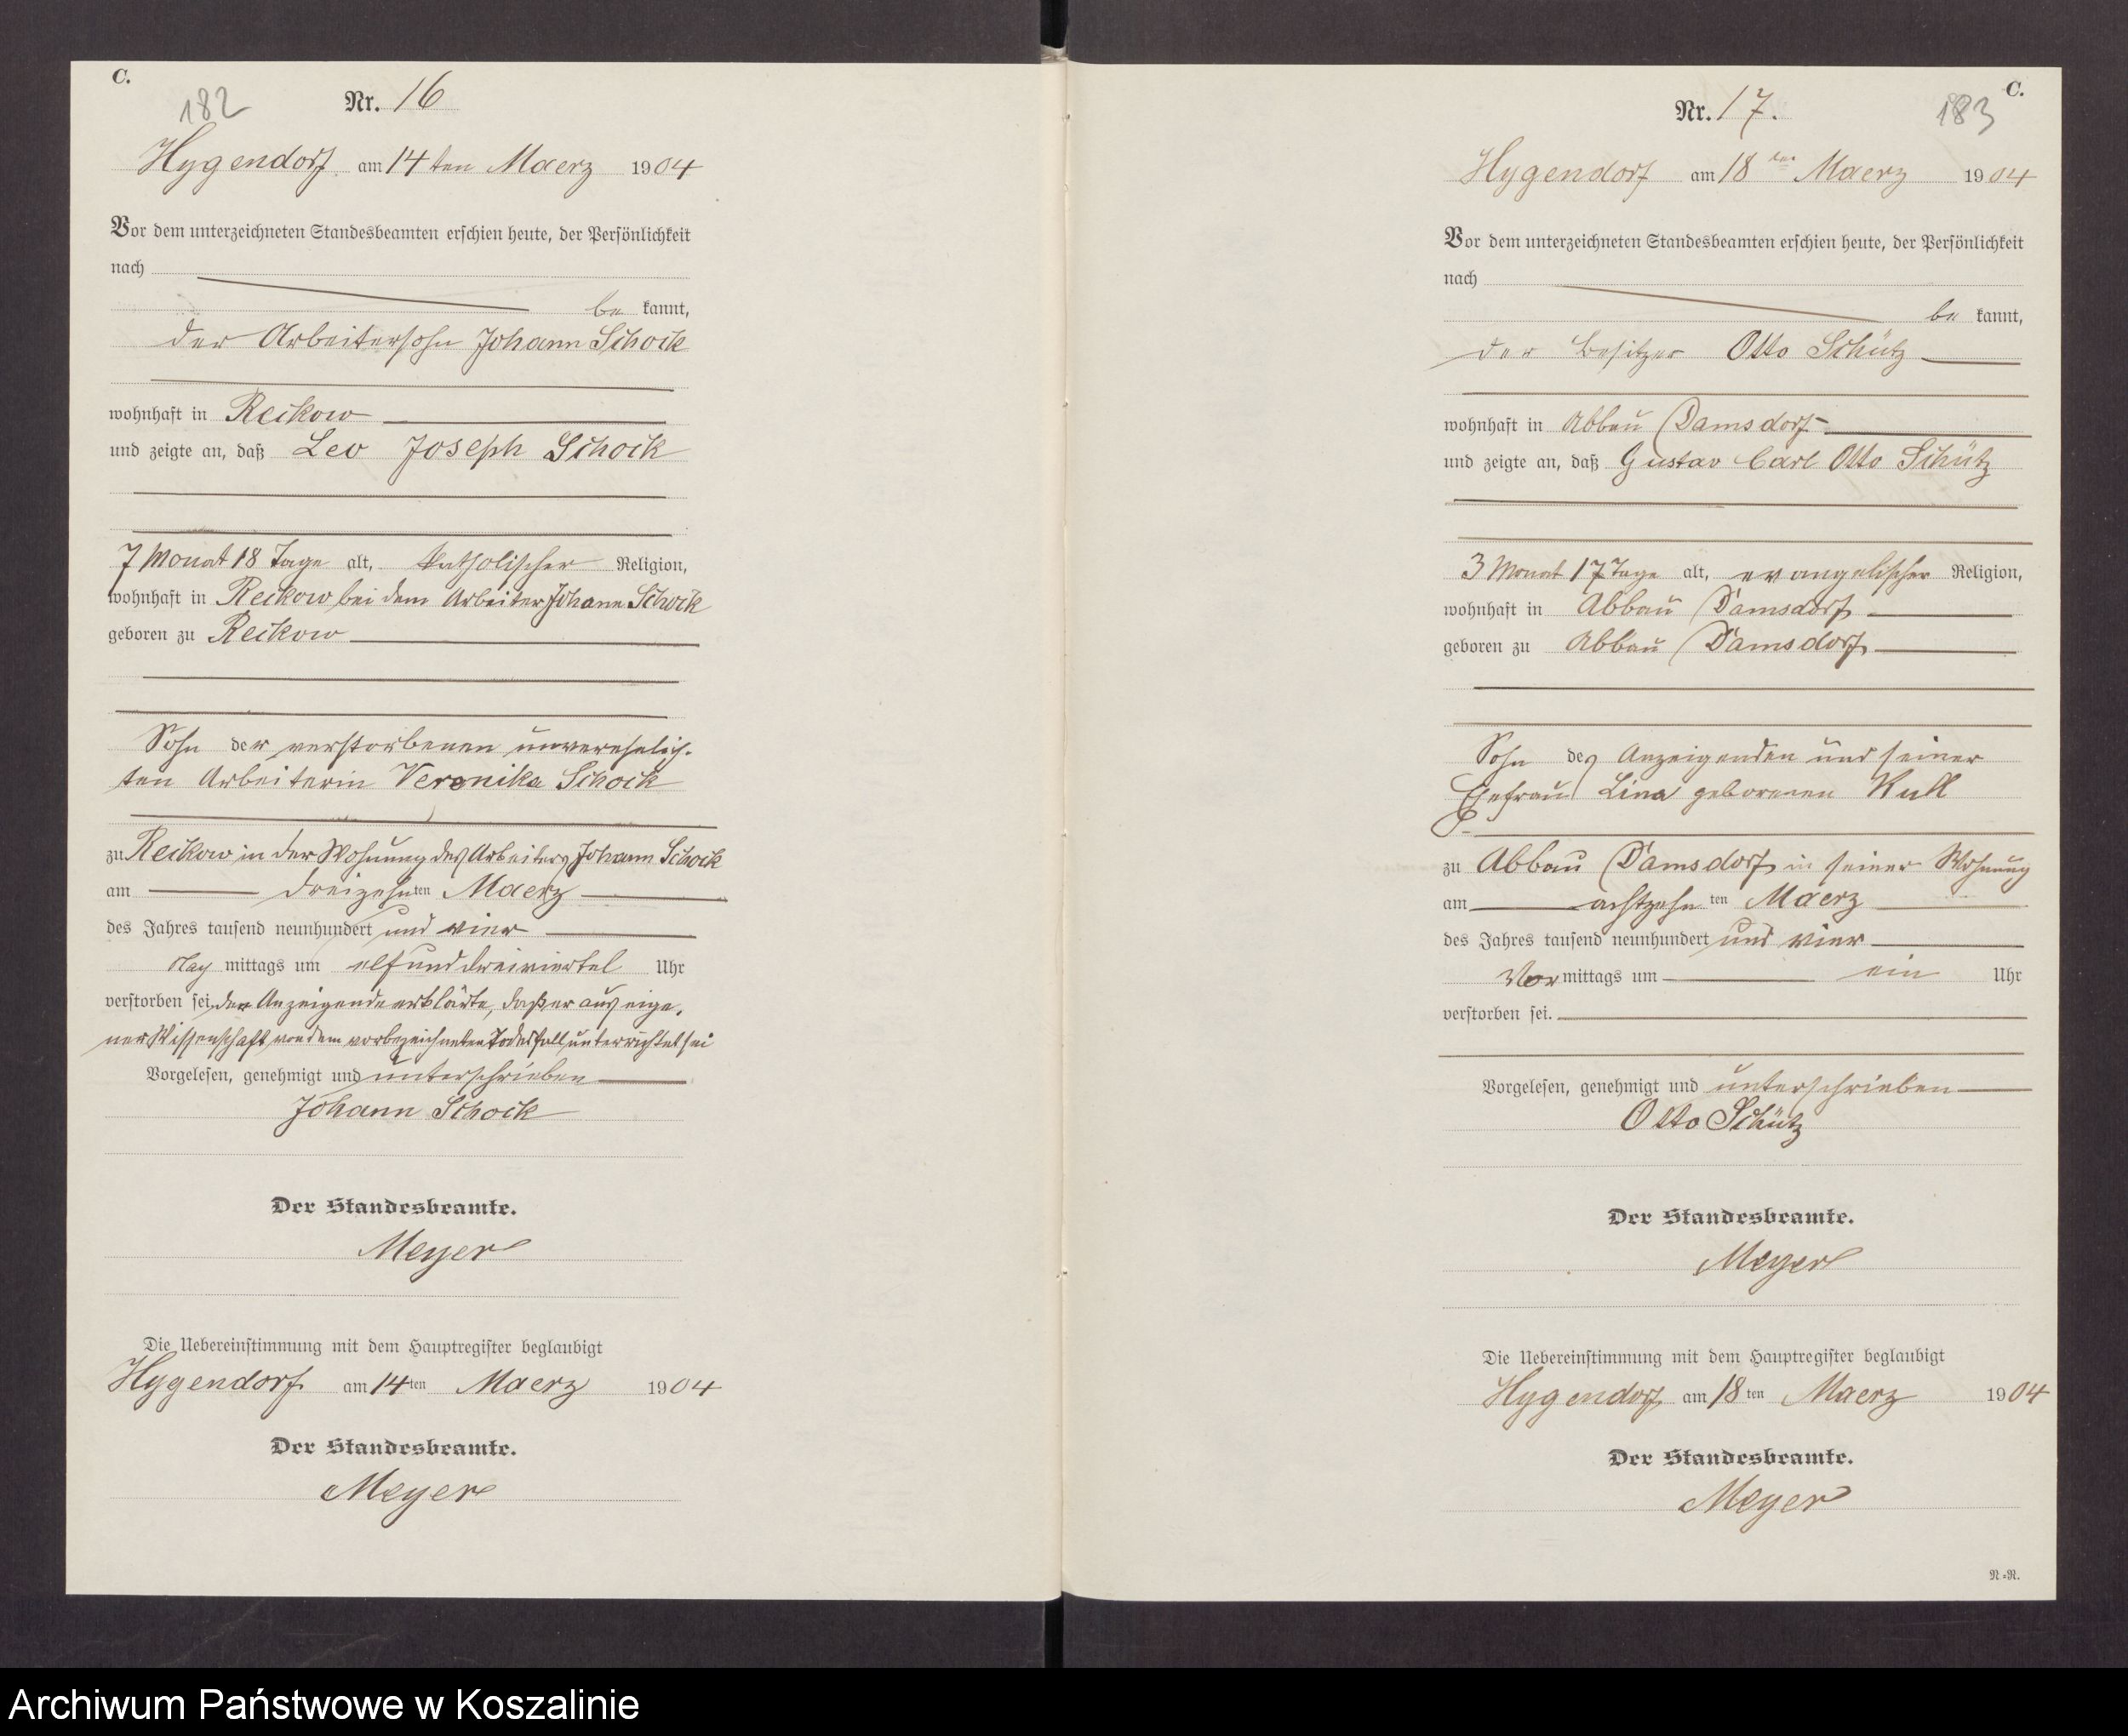 C.
182
Nr. 16
Hygendorf am 14ten Maerz 1904
Vor dem unterzeichneten Standesbeamten erschien heute, der Persönlichkeit
nach
be kannt,
der Arbeitersohn Johann Schock
wohnhaft in Reckow
und zeigte an, daß Leo Joseph Schock
7 Monat 18 Tage alt, katholischer Religion,
wohnhaft in Reckow bei dem Arbeiter Johann Schock
geboren zu Reckow
Sohn der verstorbenen unverehelich-
ten Arbeiterin Veronika Schock
zu Reckow in der Wohnung des Arbeiters Johann Schock
am dreizehnten Maerz
des Jahres tausend neunhundert und vier
Nach mittags um elf und dreiviertel Uhr
verstorben sei, der Anzeigende erklärte, daß er aus eige-
ner Wissenschaft von dem vorbezeichneten Todesfall unterrichtet sei
Vorgelesen, genehmigt und unterschrieben
Johann Schock
Der Standesbeamte.
Meyer
Die Uebereinstimmung mit dem Hauptregister beglaubigt
Hygendorf am 14ten Maerz 1904
Der Standesbeamte.
Meyer
C.
183
Nr. 17.
Hygendorf am 18ten Maerz 1904
Vor dem unterzeichneten Standesbeamten erschien heute, der Persönlichkeit
nach
be kannt,
der Besitzer Otto Schütz
wohnhaft in Abbau Damsdorf
und zeigte an, daß Gustav Carl Otto Schütz
3 Monat 17 Tage alt, evangelischer Religion,
wohnhaft in Abbau Damsdorf
geboren zu Abbau Damsdorf
Sohn des Anzeigenden und seiner
Ehefrau Lina geborenen
zu Abbau Damsdorf in seiner Wohnung
am achtzehnten Maerz
des Jahres tausend neunhundert und vier
Vor mittags um ein Uhr
verstorben sei.
Vorgelesen, genehmigt und unterschrieben
Otto Schütz
Der Standesbeamte.
Meyer
Die Uebereinstimmung mit dem Hauptregister beglaubigt
Hygendorf am 18ten Maerz 1904
Der Standesbeamte.
Meyer
N.=N.
Archiwum Państwowe w Koszalinie